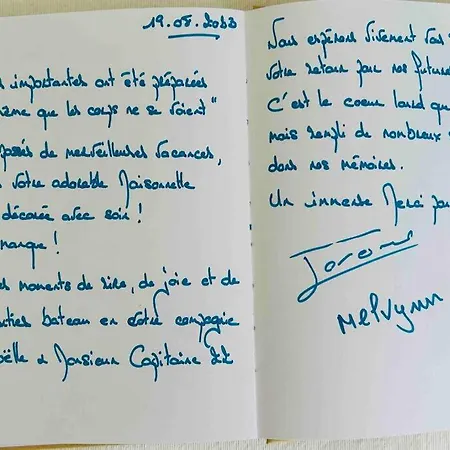 19.08.2023
s importantes ont été préparées
même que les coups ne se voient"
passés de merveilleuses vacances,
votre adorable Maisonnette
décorée avec soin !
manque !
moments de rire, de joie et de
bateau en votre compagnie
oëlle & Monsieur Capitaine
Nous espérons vivement vous
votre retour pour nos futures
C'est le coeur lourd que
mais rempli de nombreux
dans nos mémoires.
Un immense Merci pour
Melvynn